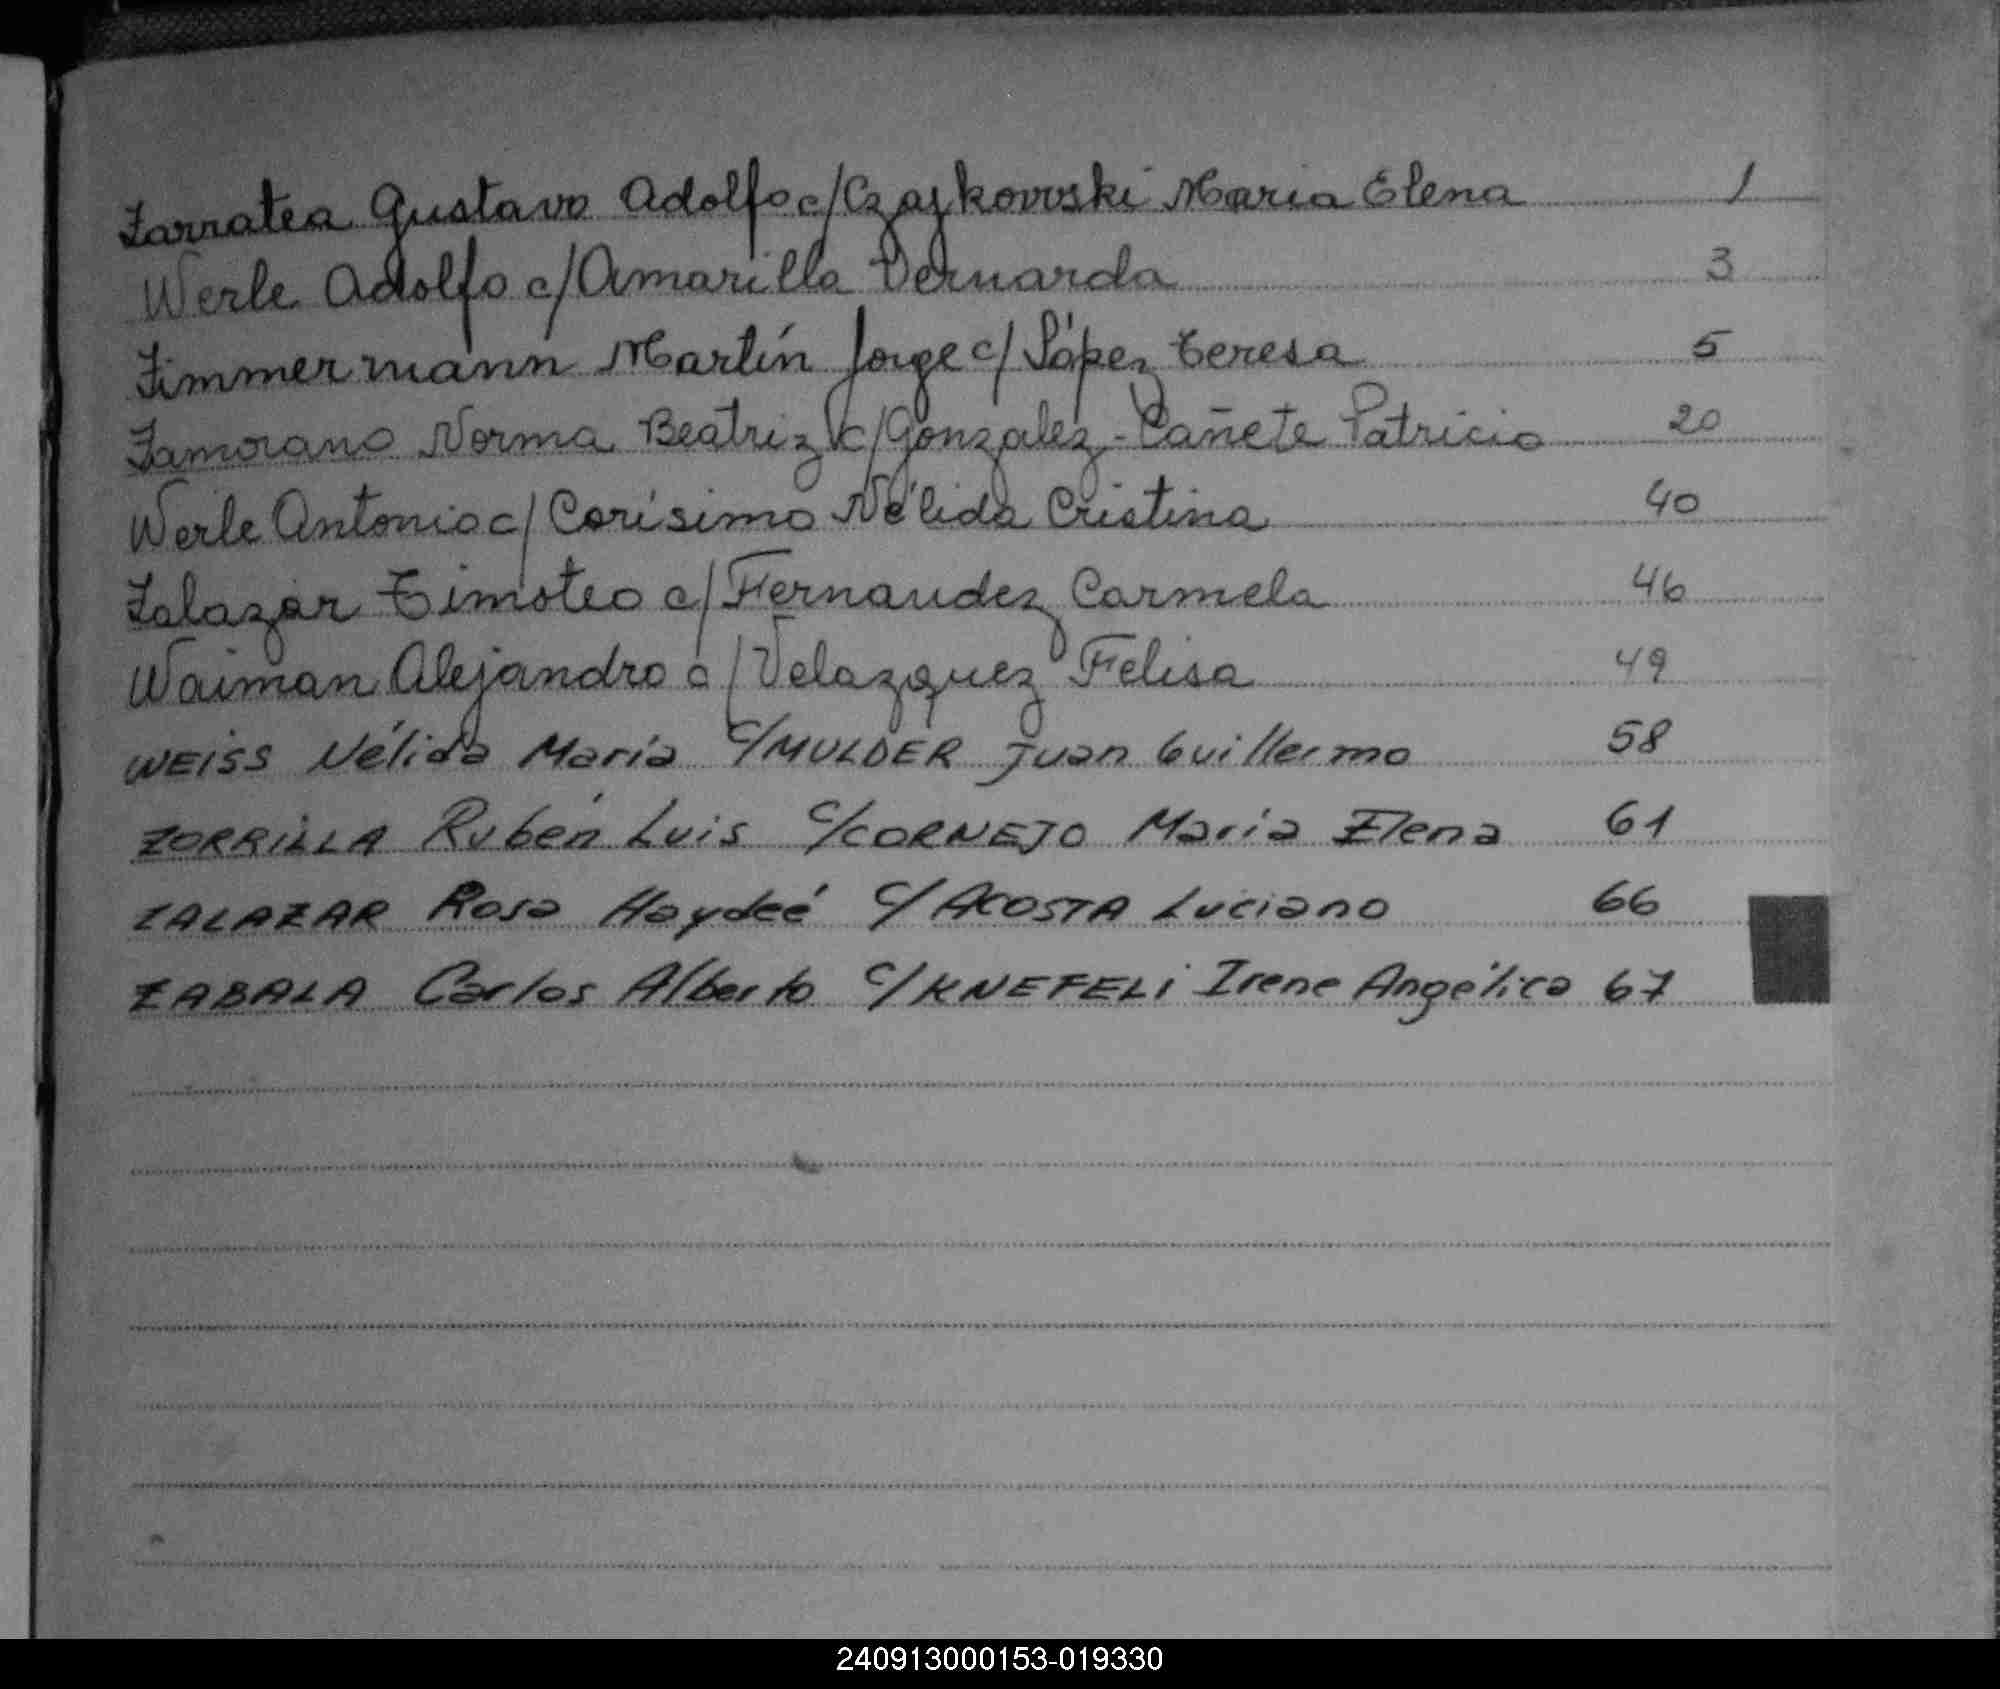 Zarratea Gustavo Adolfo c/Czajkowski Maria Elena 1
Werle Adolfo c/Amarilla Bernarda 3
Zimmermann Martín Jorge c/ López Teresa 5
Zamorano Norma Beatriz c/Gonzalez-Cañete Patricio 20
Werle Antonio c/ Corísimo Nélida Cristina 40
Zalazar Timoteo c/ Fernandez Carmela 46
Waiman Alejandro c/ Velazquez Felisa 49
WEISS Nélida María c/MULDER Juan Guillermo 58
ZORRILLA Rubén Luis c/CORNEJO María Elena 61
ZALAZAR Rosa Haydeé c/ ACOSTA Luciano 66
ZABALA Carlos Alberto c/KNEFELI Irene Angélica 67
240913000153-019330